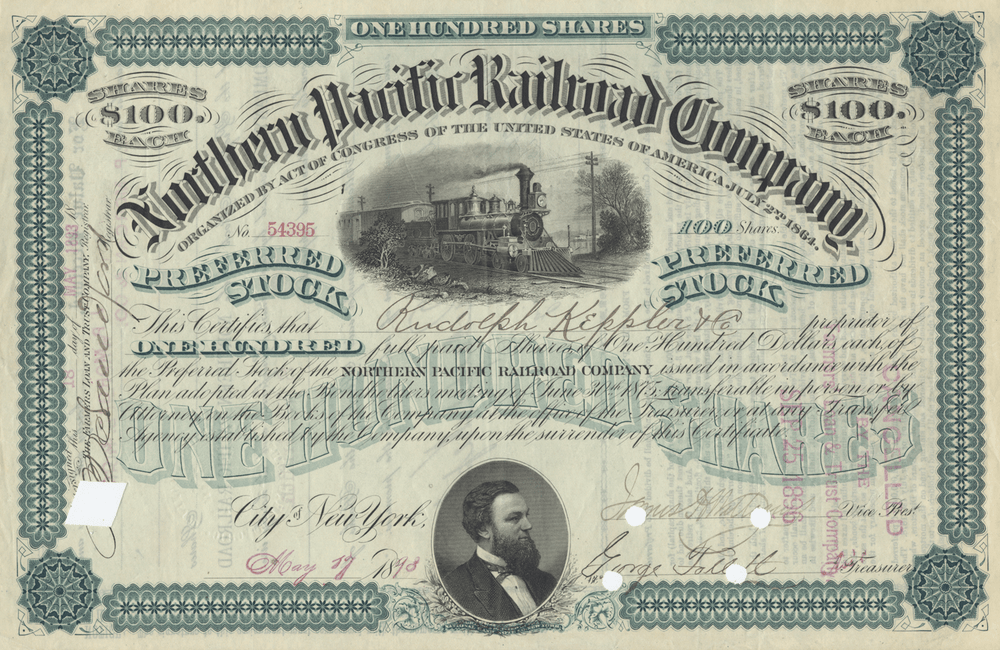 ONE HUNDRED SHARES
SHARES $100. EACH
SHARES $100. EACH
Northern Pacific Railroad Company.
ORGANIZED BY ACT OF CONGRESS OF THE UNITED STATES OF AMERICA, JULY 2ND 1864.
No. 54395
100 Shares.
PREFERRED STOCK
PREFERRED STOCK
This Certifies, that Rudolph Keppler & Co proprietor of
ONE HUNDRED full paid Shares of One Hundred Dollars each, of
the Preferred Stock of the NORTHERN PACIFIC RAILROAD COMPANY issued in accordance with the
Plan adopted at the Bondholders meeting of June 30th 1875, transferable in person or by
Attorney on the Books of the Company at the office of the Treasurer, or at any Transfer
Agency established by the Company, upon the surrender of this Certificate.
ONE HUNDRED SHARES
City of New York,
Vice Prest.
May 1893
George
Treasurer
day of
THE FARMERS LOAN AND TRUST COMPANY,
CANCELLED
BY THE
Farmers Loan & Trust Company
SEP 25 1896